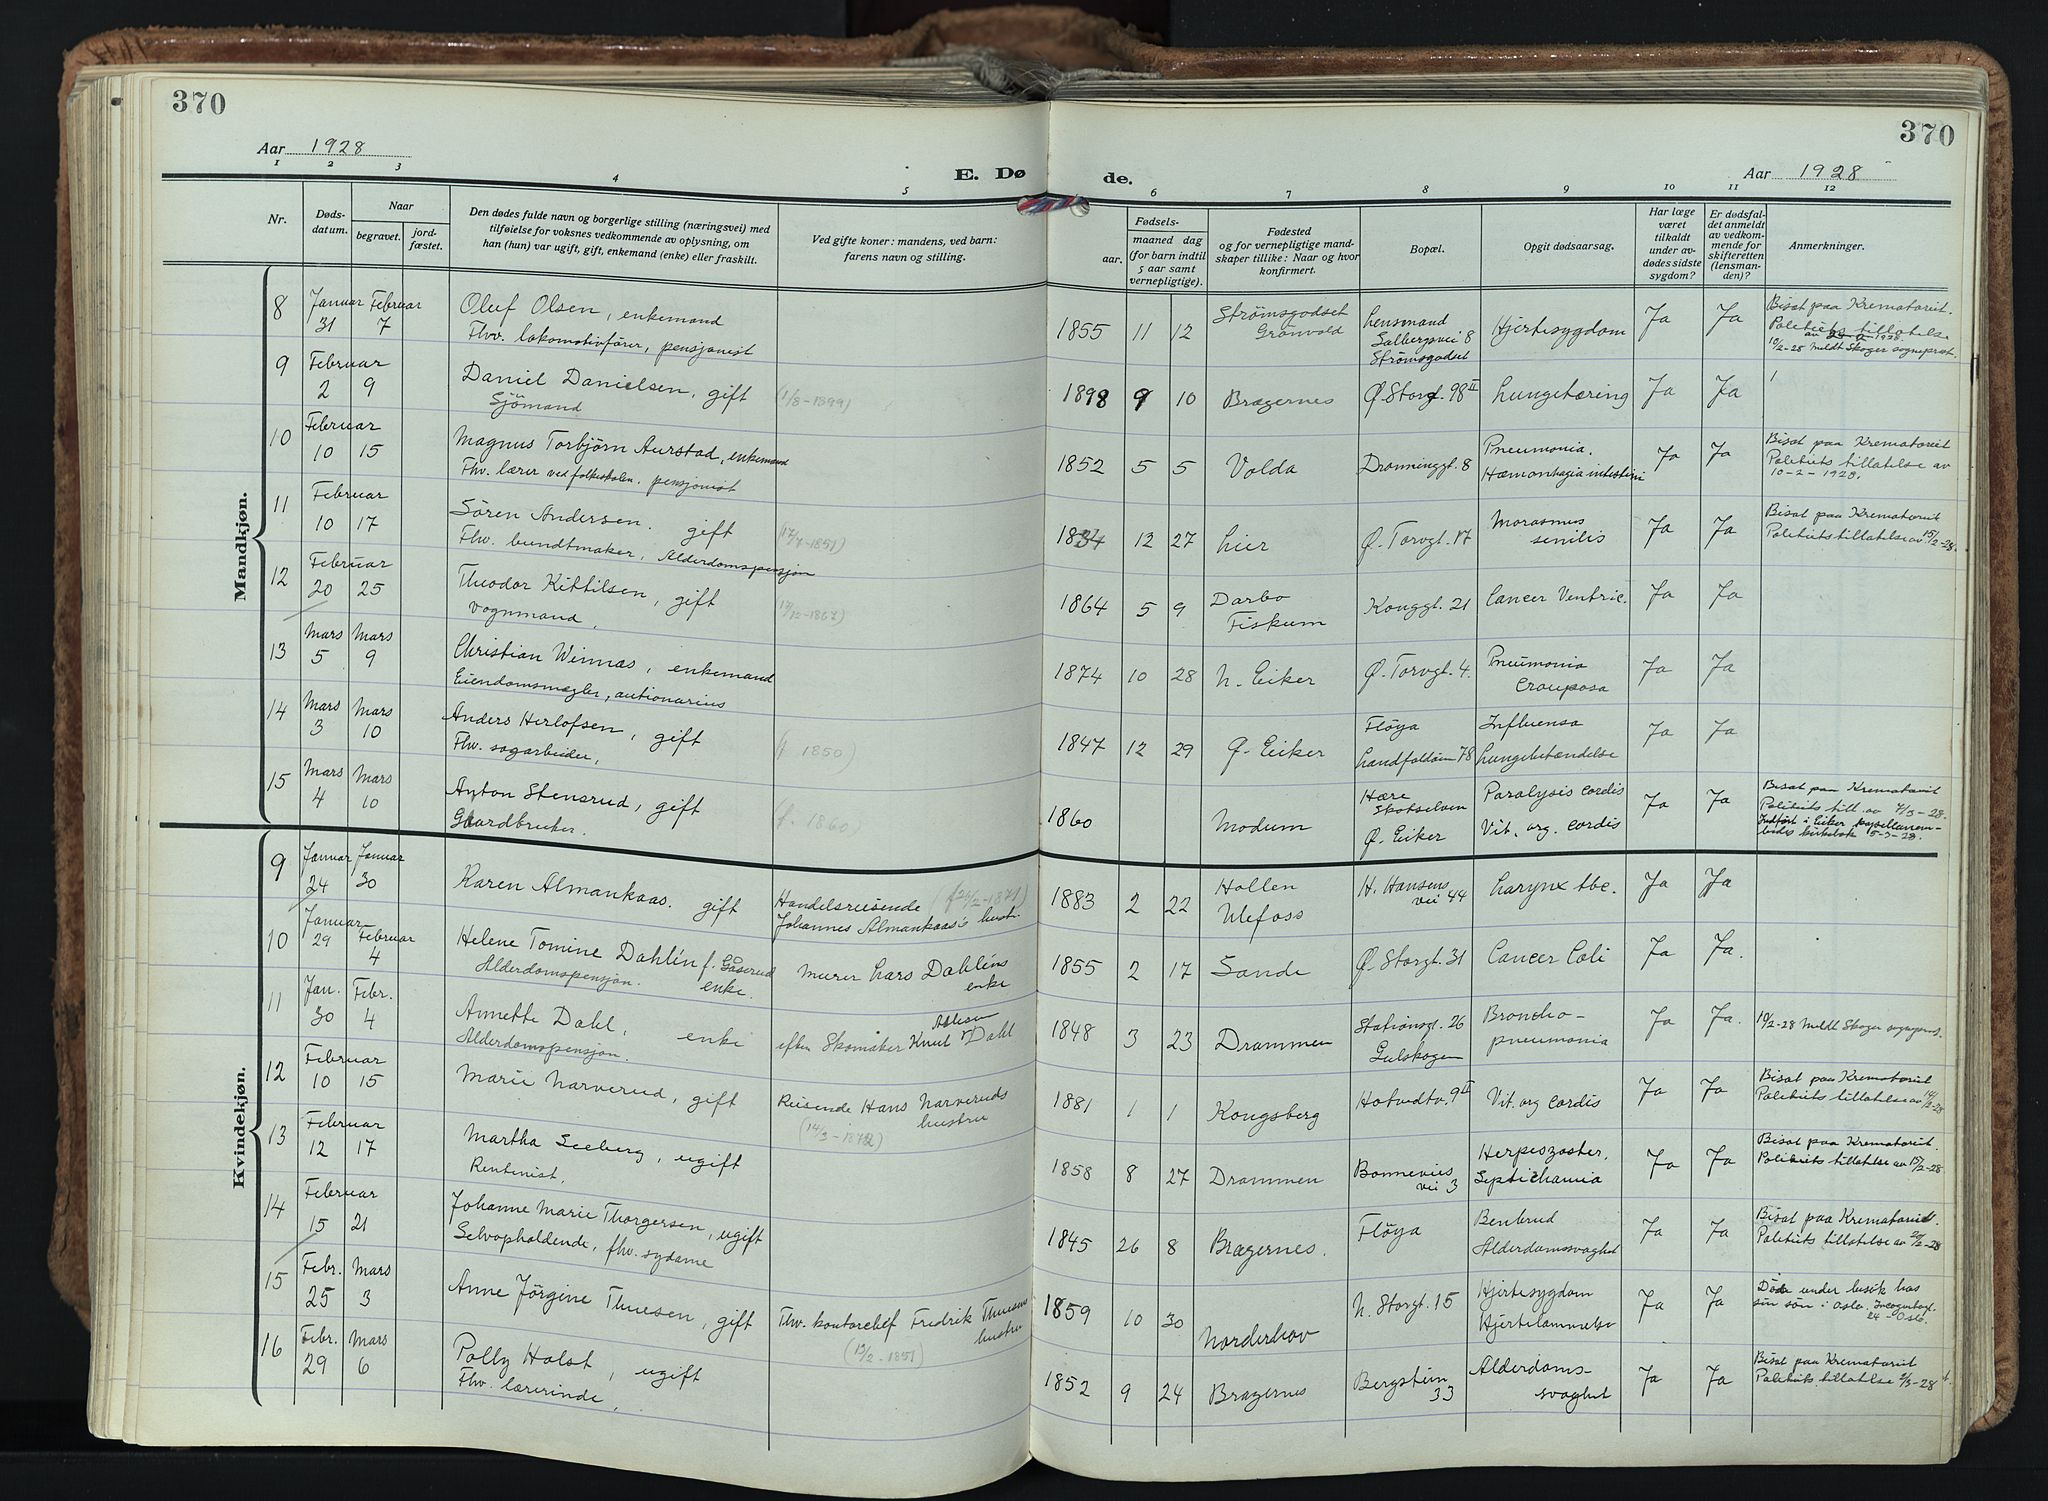 370
370
Aar 1928
Aar 1928
E. Dø de.
1 2 3 4 5 6 7 8 9 10 11 12
Nr.
Døds-
datum.
Naar
begravet.
jord-
fæstet.
Den dødes fulde navn og borgerlige stilling (næringsvei) med
tilføielse for voksnes vedkommende av oplysning, om
han (hun) var ugift, gift, enkemand (enke) eller fraskilt.
Ved gifte koner: mandens, ved barn:
farens navn og stilling.
Fødsels-
aar.
maaned dag
(for barn indtil
5 aar samt
vernepligtige).
Fødested
og for vernepligtige mand-
skaper tillike: Naar og hvor
konfirmert.
Bopæl.
Opgit dødsaarsag.
Har læge
været
tilkaldt
under av-
dødes sidste
sygdom?
Er dødsfal-
det anmeldt
av vedkom-
mende for
skifteretten
(lensman-
den)?
Anmerkninger.
Mandkjøn.
8
Januar Februar
31 7
Oluf Olsen, enkemand
Fhv. lokomotivfører, pensjonist
1855 11 12
Strømsgodset
Grønvold
Lensmand
Solbergsvei 8
Strømsgodset
Hjertesygdom
Ja Ja
Bisat paa Krematoriet.
Politiets tillatelse
1928.
10/2-28 Meldt Skoger sogneprest.
9
Februar
2 9
Daniel Danielsen, gift
Sjømand
(1/8-1899)
1898 9 10
Bragernes
Ø. Storgt. 98 II
Lungetæring
Ja Ja
10
Februar
10 15
Magnus Torbjørn Aurstad, enkemand
Fhv. lærer ved folkeskolen, pensjonist
1852 5 5
Volda
Dronninggt. 8
Pneumonia.
Hæmorrhagia intestini
Ja Ja
Bisat paa Krematoriet
Politiets tillatelse av
10-2-1928.
11
Februar
10 17
Søren Andersen. gift
Fhv. bundtmaker, Alderdomspensjon
(17/7-1851)
1834 12 27
Lier
Ø. Torvgt. 17
Marasmus
senilis
Ja Ja
Bisat paa Krematoriet
Politiets tillatelse av 15/2-28.
12
Februar
20 25
Theodor Kittilsen, gift
vognmand,
1864 5 9
Darbo
Fiskum
Konggt. 21
Cancer Ventric.
Ja Ja
13
Mars Mars
5 9
Christian Winnæs, enkemand
Eiendomsmægler, auctionarius
1874 10 28
N. Eiker
Ø. Torvgt. 4.
Pneumonia
crouposa
Ja Ja
14
Mars Mars
3 10
Anders Herlofsen, gift
Fhv. sagarbeider,
(f. 1850)
1847 12 29
Ø. Eiker
Fløya
Landfaldøen 78
Influensa
Lungebetændelse
Ja Ja
15
Mars Mars
4 10
Anton Stensrud, gift
Gaardbruker.
(f. 1860)
1860
Modum
Hære
Skotselven
Ø. Eiker
Paralysis cordis
Vit. org. cordis
Ja Ja
Bisat paa Krematoriet
Politiets till. av 9/3-28.
Indført i Eiker kapellanem-
bedes kirkebok 15-3-28.
Kvindekjøn.
9
Januar Januar
24 30
Karen Almankaas. gift
Handelsreisende
Johannes Almankaas's hustr.
1883 2 22
Hollen
Ulefoss
H. Hansens
vei 44
Larynx tbc.
Ja Ja
10
Januar Februar
29 4
Helene Tomine Dahlin f. Gåserud
Alderdomspensjon. enke.
Murer Lars Dahlins
enke
1855 2 17
Sande
Ø. Storgt. 31
Cancer Coli
Ja Ja.
11
Jan. Febr.
30 4
Annette Dahl, enke
Alderdomspensjon.
efter Skomaker Knut Dahl
1848 3 23
Drammen
Stationsgt. 26
Gulskogen
Broncho-
pneumonia
Ja Ja.
10/2-28 Meldt Skoger sogneprest.
12
Februar
10 15
Marie Narverud, gift
Reisende Hans Narveruds
hustru
1881 1 1
Kongsberg
Hotvedtv. 9 II
Vit. org cordis
Ja Ja
Bisat paa Krematoriet
Politiets tillatelse av 14/2-28
13
Februar
12 17
Martha Seeberg, ugift
Rentenist.
1858 8 27
Drammen
Bonnevies
vei 3
Herpeszoster,
Septichæmia
Ja Ja
Bisat paa Krematoriet.
Politiets tillatelse av 15/2-28
14
Februar
15 21
Johanne Marie Thorgersen, ugift
Selvopholdende, fhv. sydame
1845 26 8
Bragernes.
Fløya
Benbrud
Alderdomssvaghet
Ja Ja
Bisat paa Krematoriet.
Politiets tillatelse av 20/2-28
15
Febr. Mars
25 3
Anne Jørgine Thuesen, gift
Fhv. kontorchef Fredrik Thuesens
hustru
(13/2-1851)
1859 10 30
Norderhov
N. Storgt. 15
Hjertesygdom
Hjertelammelse
Ja Ja
Døde under besøk hos
sin søn i Oslo.
24 Oslo.
16
Febr. Mars
29 6
Polly Holst, ugift
Fhv. lærerinde,
1852 9 24
Bragernes
Bergstien
33
Alderdoms-
svaghet
Ja Ja
Bisat paa Krematoriet
Politiets tillatelse 2/3-28